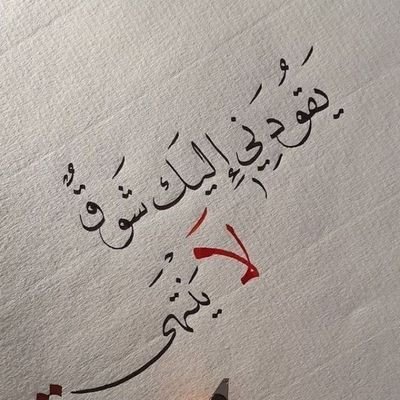 يَقُودُنِي إليَك شَوقٌ
لَا
يَنْتَهَى